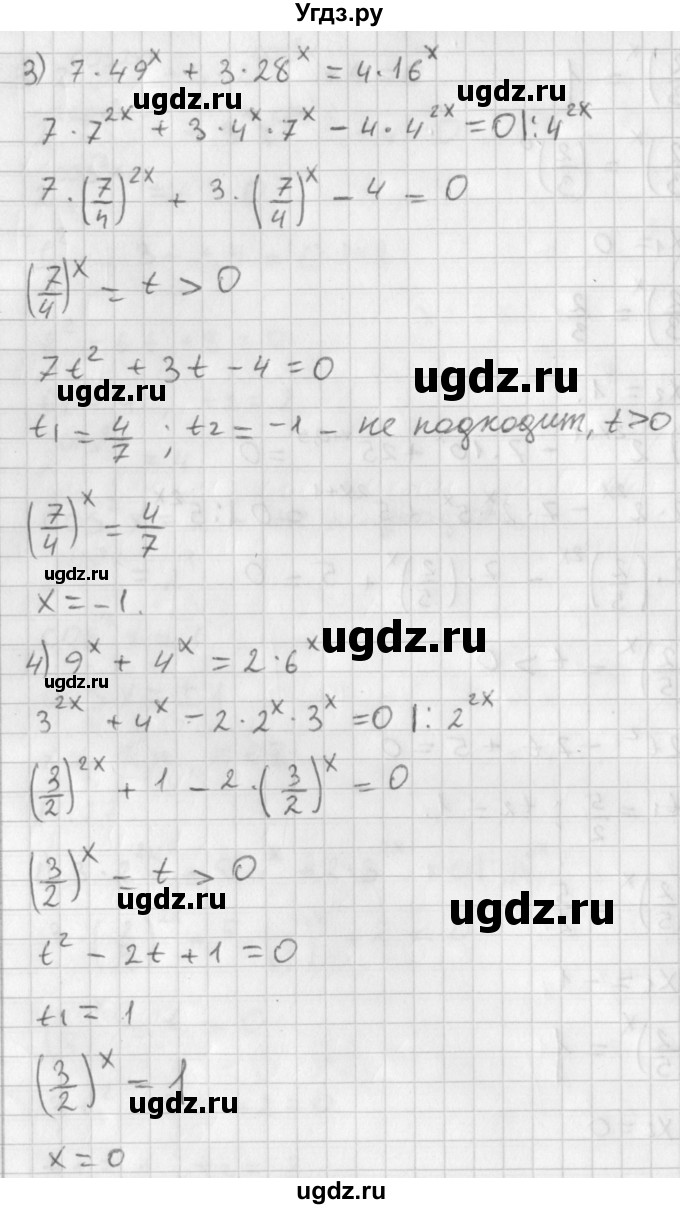 Угдз.ру
3) 7·49^x + 3·28^x = 4·16^x
ugdz.ru ugdz.ru
7·7^2x + 3·4^x·7^x − 4·4^2x = 0 |: 4^2x
7·(7/4)^2x + 3·(7/4)^x − 4 = 0
(7/4)^x = t > 0
7t² + 3t − 4 = 0
ugdz.ru ugdz.ru
t1 = 4/7 ; t2 = −1 − не подходит, t>0
(7/4)^x = 4/7
ugdz.ru
x = −1.
ugdz.ru
4) 9^x + 4^x = 2·6^x
ugdz.ru
3^2x + 4^x − 2·2^x·3^x = 0 |: 2^2x
(3/2)^2x + 1 − 2·(3/2)^x = 0
(3/2)^x = t > 0
ugdz.ru ugdz.ru
t² − 2t + 1 = 0
t1 = 1
(3/2)^x = 1
ugdz.ru
x = 0
ugdz.ru